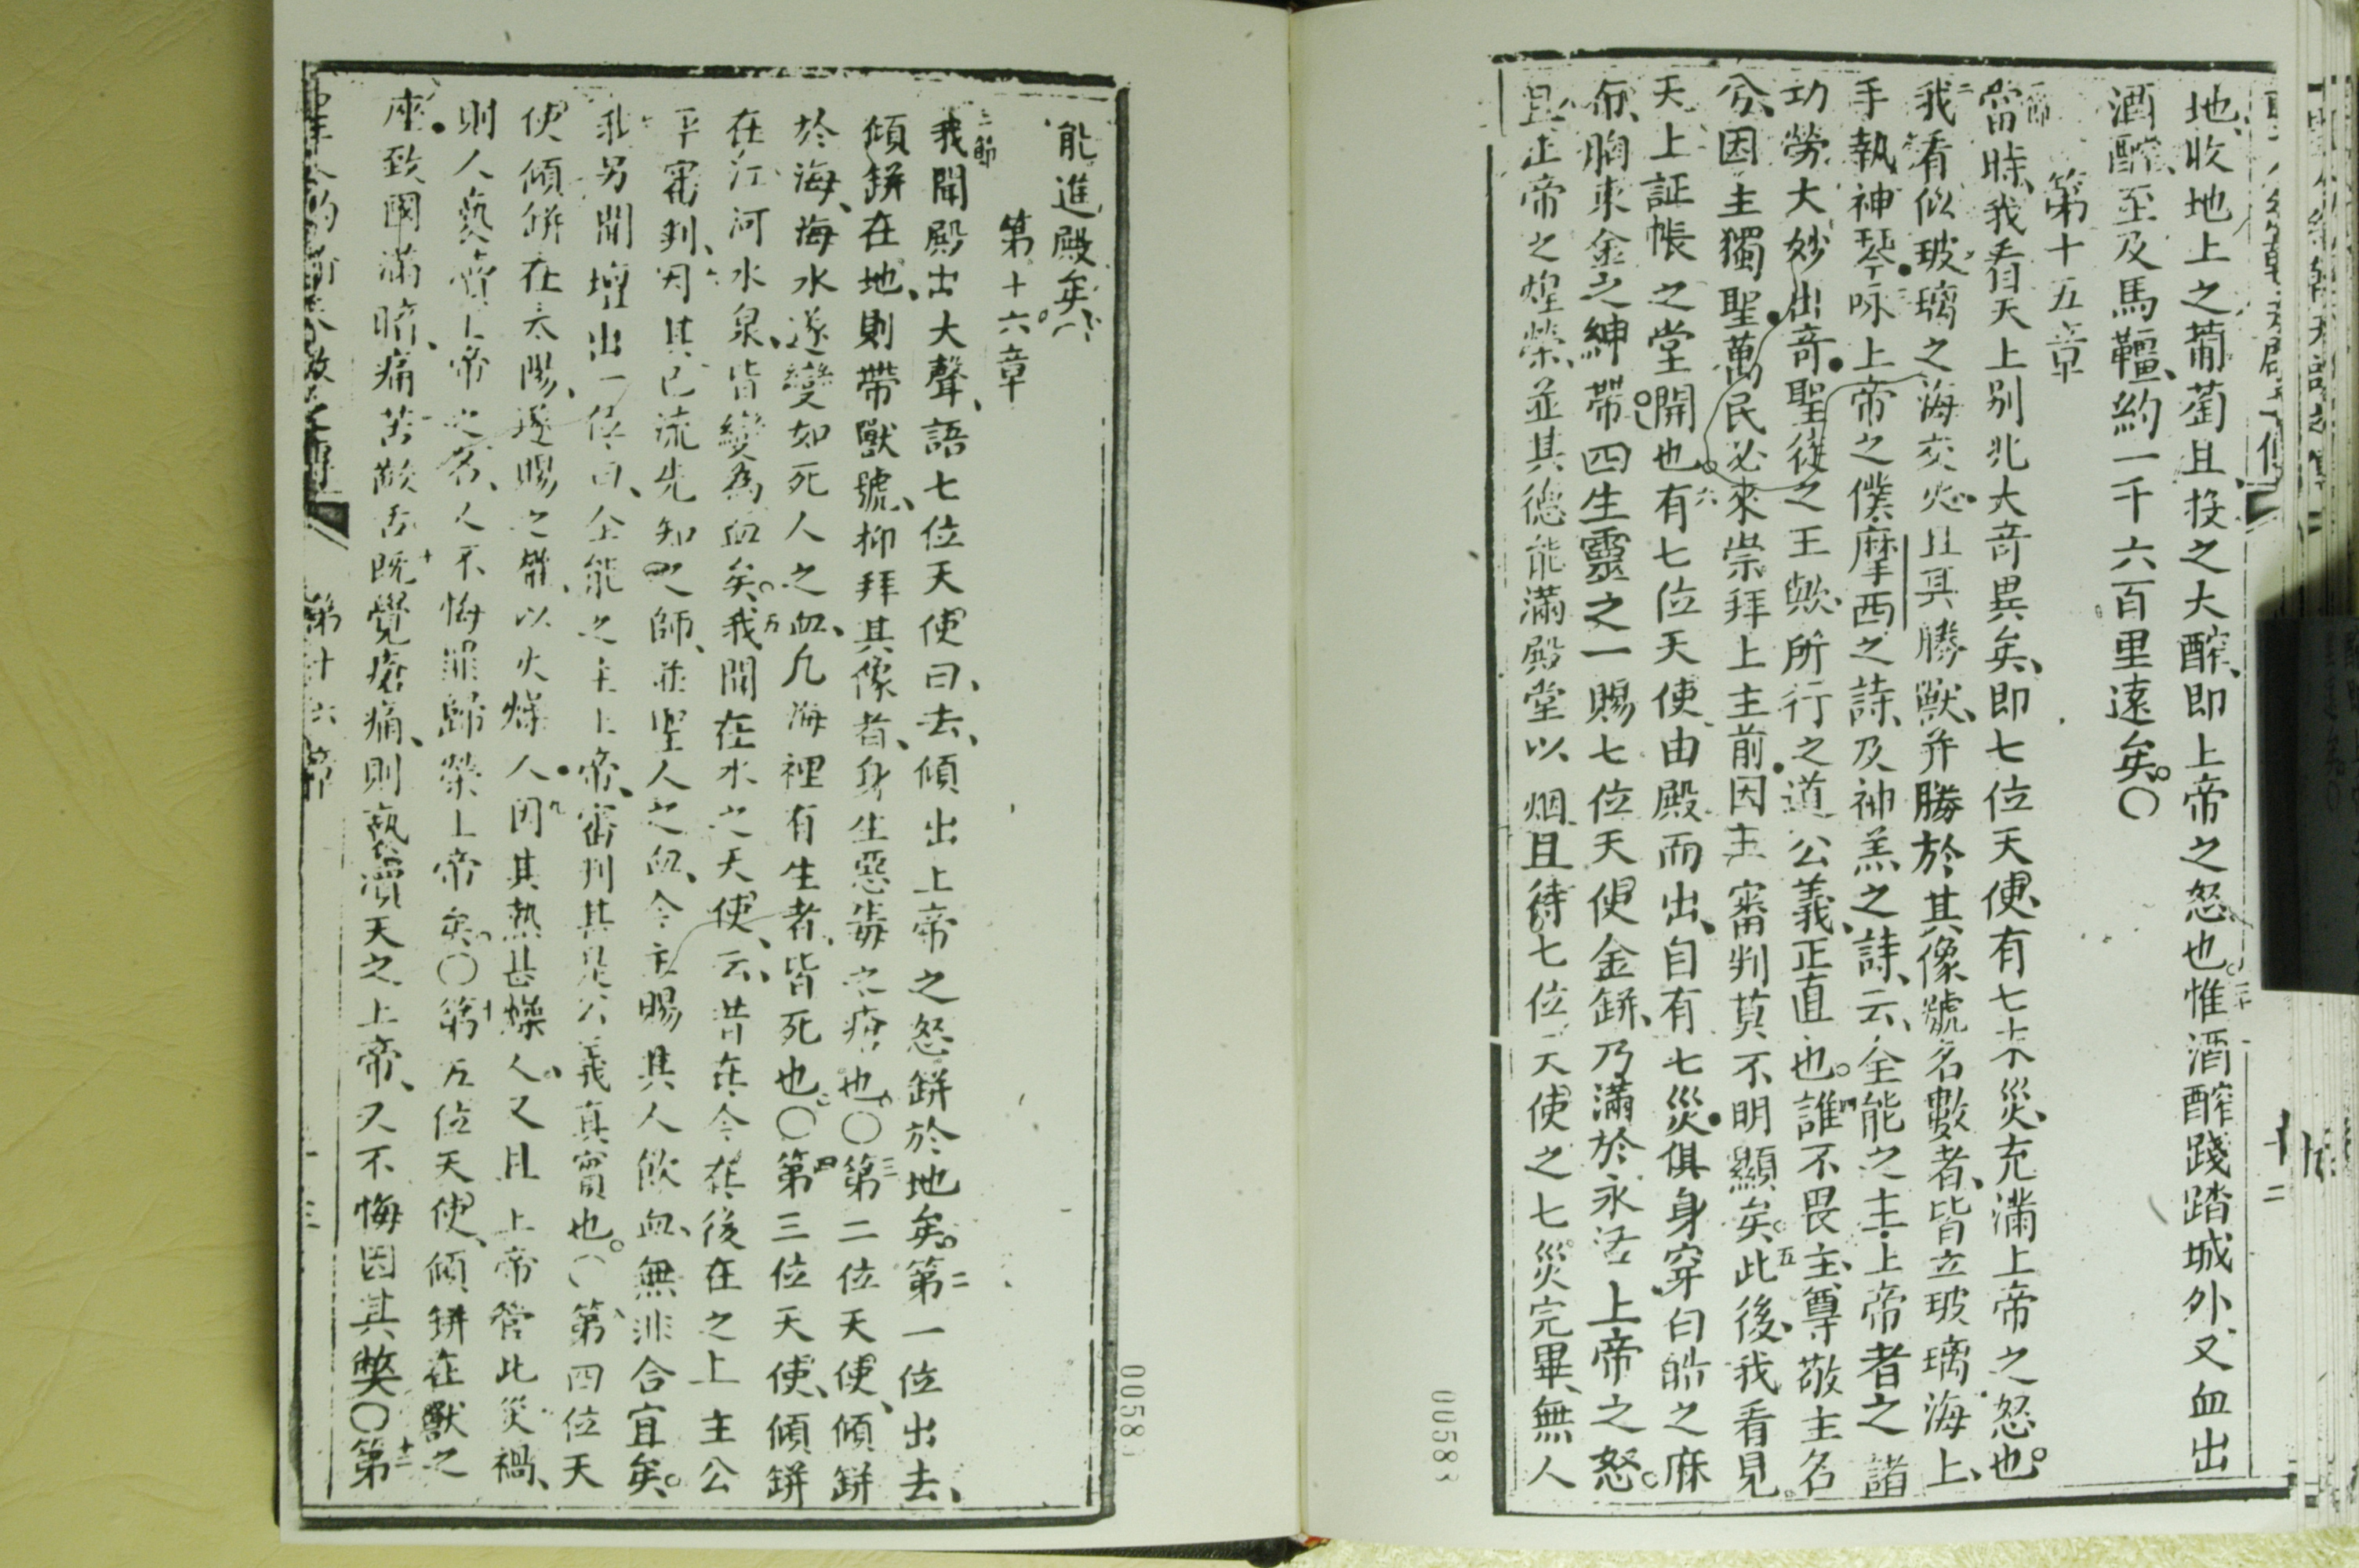 地、收地上之葡萄且投之大醡、即上帝之怒也。惟酒醡踐踏城外、又血出
酒醡、至及馬韁、約一千六百里遠矣。〇
第十五章
當時、我看天上別兆大奇異矣、即七位天使、有七末災、充滿上帝之怒也。
二我看似玻璃之海交火、且其勝獸、并勝於其像號名數者、皆立玻璃海上、
手執神琴、咏上帝之僕摩西之詩、及神羔之詩、云、全能之主上帝者之諸
功勞大妙出奇聖徒之王歟、所行之道公義、正直也。四誰不畏主、尊敬主名
兮、因主獨聖、萬民必來崇拜上主前、因主審判莫不明顯矣。五此後、我看見
天上証帳之堂開也。六有七位天使由殿而出、自有七災、俱身穿白皓之麻
布、胸束金之紳帶四生靈之一賜七位天使金缾、乃滿於永活上帝之怒。
且上帝之煌榮、並其德能滿殿堂以烟、且待七位天使之七災完畢、無人
能進殿矣、
第十六章
一節我聞殿出大聲、語七位天使曰、去、傾出上帝之怒缾於地矣。二第一位出去、
傾缾在地、則帶獸號、抑拜其像者、身生惡毒之瘡也。〇三第二位天使、傾缾
於海、海水遂變如死人之血、凡海裡有生者、皆死也。〇四第三位天使、傾缾
在江河水泉、皆變為血矣。五我聞在水之天使、云、昔在今在後在之上主公
平審判、因其已流先知之師、並聖人之血、今主賜其人飲血、無非合宜矣。
我另聞壇出一位曰、全能之主上帝、審判其是公義真實也。〇第四位天
使傾缾在太陽、遂賜之權、以火爍人。九因其熱甚爍人、又且上帝管此災禍、
則人褻瀆上帝之名、人不悔罪歸榮上帝矣。〇十第五位天使、傾缾在獸之
座、致國滿暗、痛苦㗖舌既覺瘡痛、則褻瀆天之上帝、又不悔因其獘〇第
第十六章
十二
0058
0058